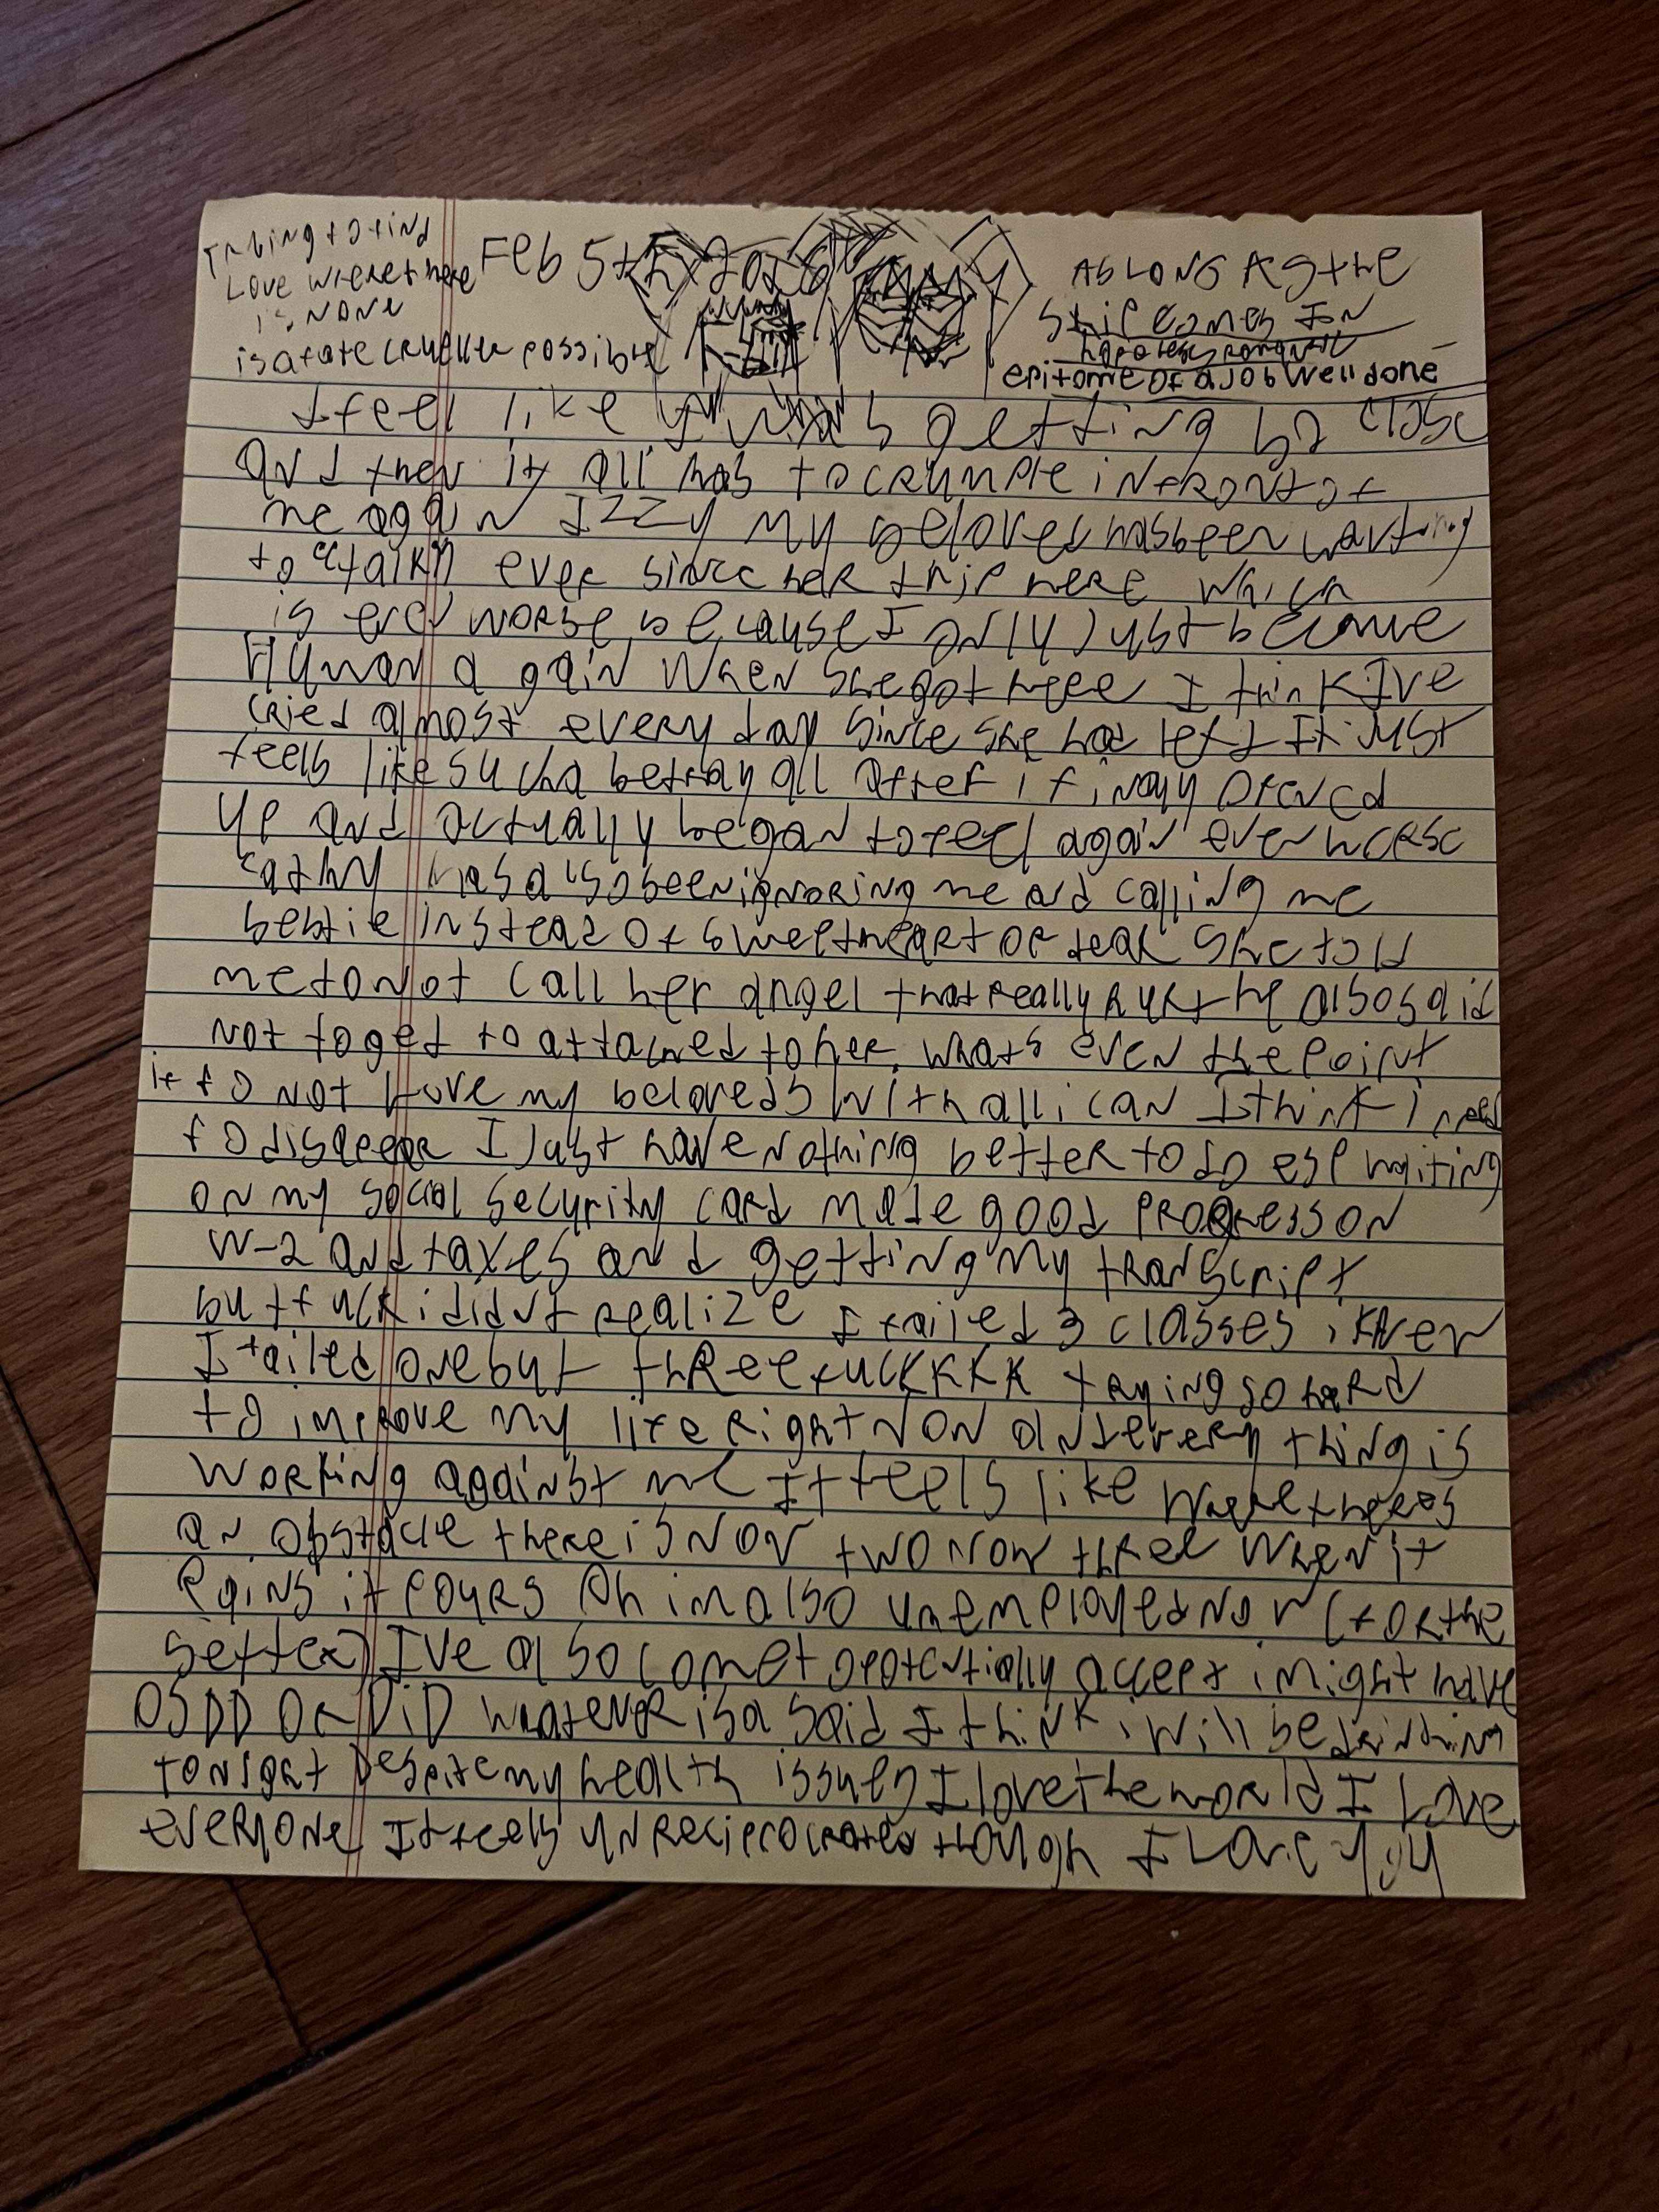 Trying to find
Love where there
is none
is a fate crueller possible
Feb 5th 2026
AS LONG AS the
Ship comes In
epitome of a job well done
I feel like I was getting so close
and then it all has to crumple in front of
me again Izzy my beloved has been wanting
to "talk" ever since her trip here which
is even worse because I only just became
Human again when she got here I think Ive
cried almost every day since she had left It just
feels like such a betrayall after i finaly opened
up and actually began to feel again even worse
cathy has also been ignoring me and calling me
bestie instead of sweetheart or dear She told
me to not call her angel that really hurt he also said
not to get to attached to her. whats even the point
if to not love my beloveds with all i can I think i need
to disapear I Just have nothing better to do esp waiting
on my social security card made good progress on
W-2 and taxes and getting my transcript
but fuck i didnt realize I failed 3 classes i knew
I failed one but three fuckkkk trying so hard
to improve my life right now and every thing is
working against me It feels like where theres
an obstacle there is now two now three When it
Rains it pours Oh im also unemployed now (for the
better) I've also come to potentially accept i might have
OSDD or DiD whatever isa said I think i will be drinking
tonight Despite my health issues I love the world I Love
everyone It feels unreciprocrated though I Love you